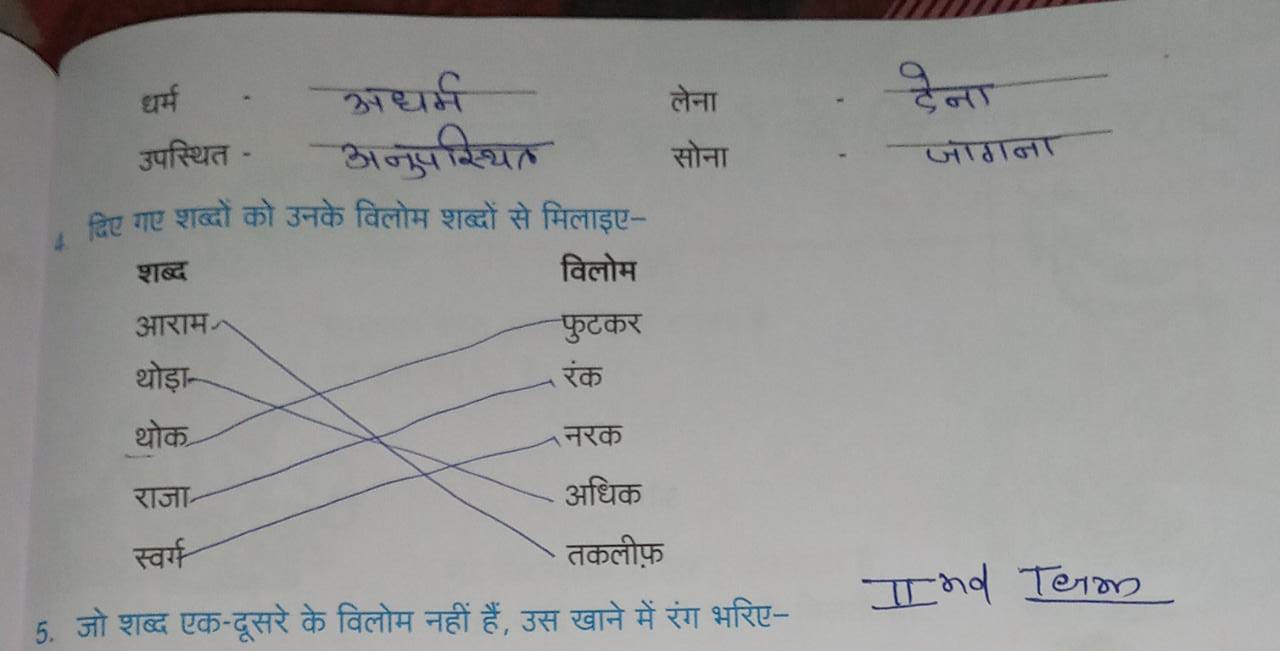 धर्म - अधर्म लेना - देना
उपस्थित - अनुपस्थित सोना - जागना
4. दिए गए शब्दों को उनके विलोम शब्दों से मिलाइए–
शब्द विलोम
आराम फुटकर
थोड़ा रंक
थोक नरक
राजा अधिक
स्वर्ग तकलीफ़
IInd Term
5. जो शब्द एक-दूसरे के विलोम नहीं हैं, उस खाने में रंग भरिए–